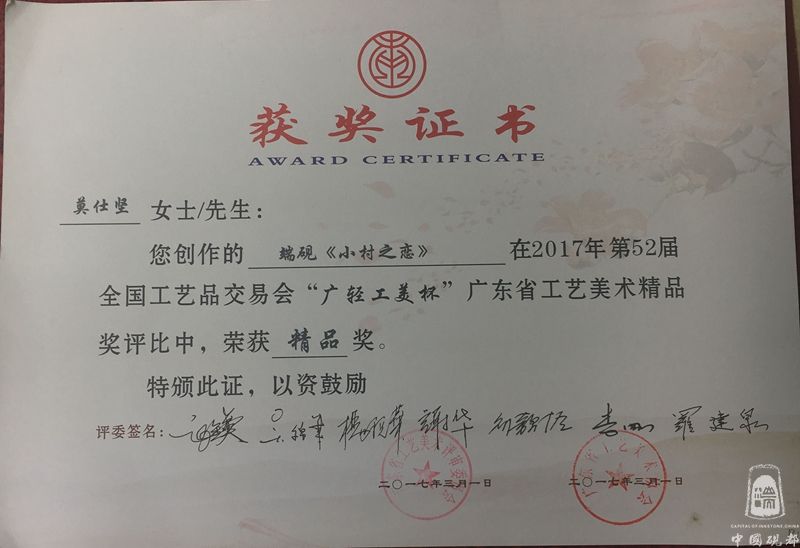 获奖证书
AWARD CERTIFICATE
莫仕坚 女士/先生：
您创作的 端砚《小村之恋》 在2017年第52届
全国工艺品交易会“广轻工美杯”广东省工艺美术精品
奖评比中，荣获 精品 奖。
特颁此证，以资鼓励
评委签名：
二〇一七年三月一日 二〇一七年三月一日
端
CAPITAL OF INKSTONE,CHINA
中國硯都